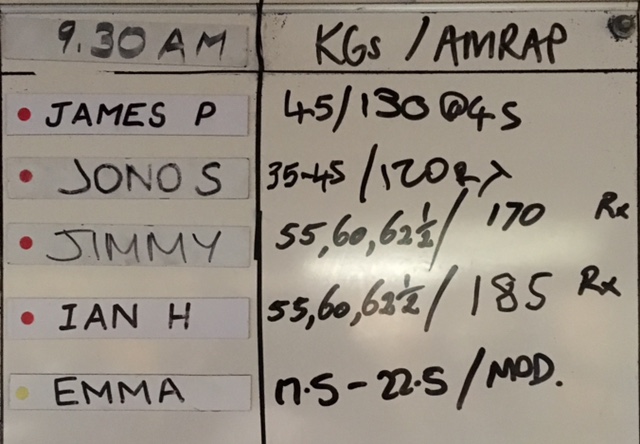 9.30 AM KGs / AMRAP
JAMES P 45/130 @45
JONO S 35-45 /120
JIMMY 55,60,62½/ 170 Rx
IAN H 55,60,62½/ 185 Rx
EMMA 17.5-22.5 / MOD.